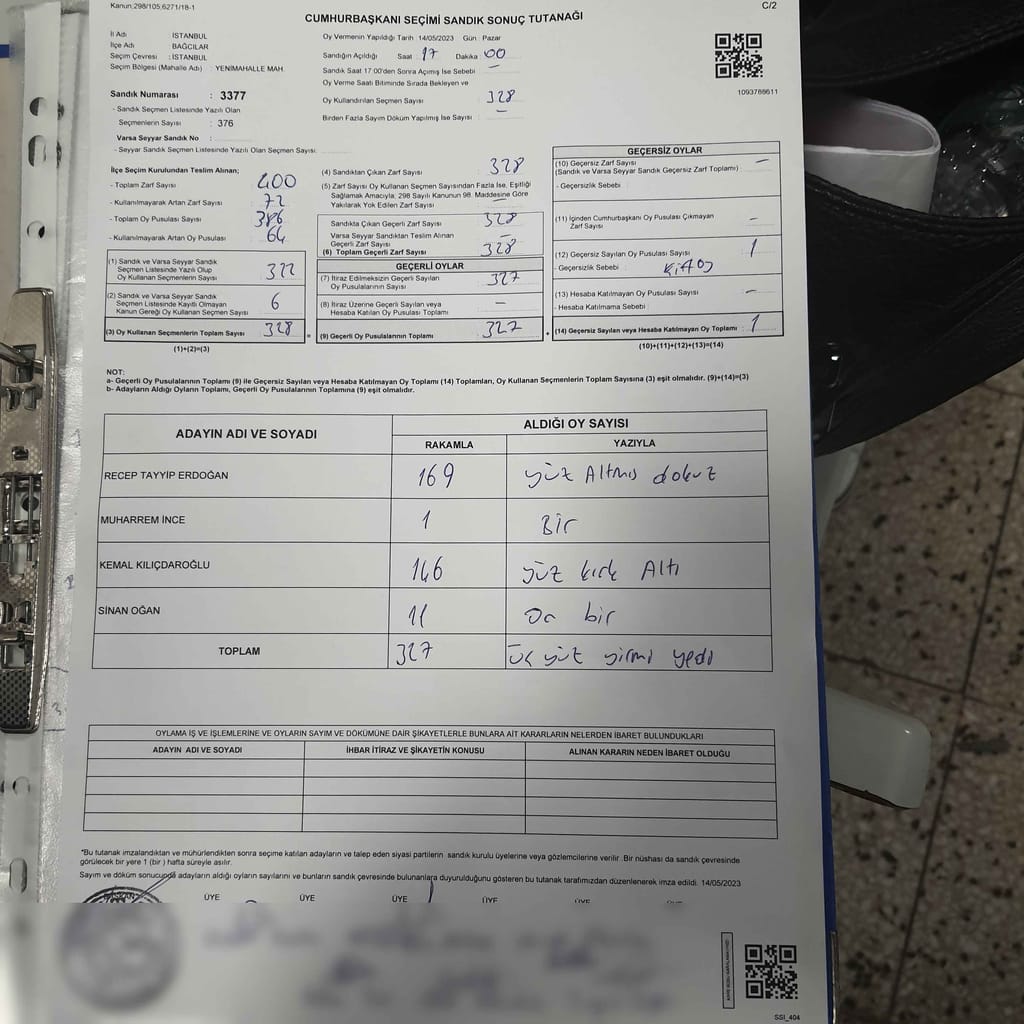 Kanun:298/105,6271/18-1
C/2
CUMHURBAŞKANI SEÇİMİ SANDIK SONUÇ TUTANAĞI
İl Adı : İSTANBUL
İlçe Adı : BAĞCILAR
Seçim Çevresi : İSTANBUL
Seçim Bölgesi (Mahalle Adı) : YENİMAHALLE MAH.
Sandık Numarası : 3377
- Sandık Seçmen Listesinde Yazılı Olan
Seçmenlerin Sayısı : 376
Varsa Seyyar Sandık No :
- Seyyar Sandık Seçmen Listesinde Yazılı Olan Seçmen Sayısı:
Oy Vermenin Yapıldığı Tarih :14/05/2023 Gün : Pazar
Sandığın Açıldığı Saat 17 Dakika :00
Sandık Saat 17:00'den Sonra Açımış İse Sebebi : —
Oy Verme Saati Bitiminde Sırada Bekleyen ve
Oy Kullandırılan Seçmen Sayısı : 328
Birden Fazla Sayım Döküm Yapılmış İse Sayısı : —
1093788611
İlçe Seçim Kurulundan Teslim Alınan;
- Toplam Zarf Sayısı : 400
- Kullanılmayarak Artan Zarf Sayısı : 72
- Toplam Oy Pusulası Sayısı : 386
- Kullanılmayarak Artan Oy Pusulası : 64
(1) Sandık ve Varsa Seyyar Sandık
Seçmen Listesinde Yazılı Olup
Oy Kullanan Seçmenlerin Sayısı : 322
(2) Sandık ve Varsa Seyyar Sandık
Seçmen Listesinde Kayıtlı Olmayan
Kanun Gereği Oy Kullanan Seçmen Sayısı : 6
(3) Oy Kullanan Seçmenlerin Toplam Sayısı : 328
(1)+(2)=(3)
(4) Sandıktan Çıkan Zarf Sayısı : 328
(5) Zarf Sayısı Oy Kullanan Seçmen Sayısından Fazla İse, Eşitliği
Sağlamak Amacıyla; 298 Sayılı Kanunun 98. Maddesine Göre
Yakılarak Yok Edilen Zarf Sayısı : —
Sandıkta Çıkan Geçerli Zarf Sayısı : 328
Varsa Seyyar Sandıktan Teslim Alınan
Geçerli Zarf Sayısı : —
(6) Toplam Geçerli Zarf Sayısı : 328
GEÇERLİ OYLAR
(7) İtiraz Edilmeksizin Geçerli Sayılan
Oy Pusulalarının Sayısı : 327
(8) İtiraz Üzerine Geçerli Sayılan veya
Hesaba Katılan Oy Pusulası Toplamı : —
(9) Geçerli Oy Pusulalarının Toplamı : 327
GEÇERSİZ OYLAR
(10) Geçersiz Zarf Sayısı : —
(Sandık ve Varsa Seyyar Sandık Geçersiz Zarf Toplamı)
- Geçersizlik Sebebi :
(11) İçinden Cumhurbaşkanı Oy Pusulası Çıkmayan
Zarf Sayısı : —
(12) Geçersiz Sayılan Oy Pusulası Sayısı : 1
- Geçersizlik Sebebi :
(13) Hesaba Katılmayan Oy Pusulası Sayısı : —
- Hesaba Katılmama Sebebi :
(14) Geçersiz Sayılan veya Hesaba Katılmayan Oy Toplamı : 1
(10)+(11)+(12)+(13)=(14)
NOT:
a- Geçerli Oy Pusulalarının Toplamı (9) ile Geçersiz Sayılan veya Hesaba Katılmayan Oy Toplamı (14) Toplamları, Oy Kullanan Seçmenlerin Toplam Sayısına (3) eşit olmalıdır. (9)+(14)=(3)
b- Adayların Aldığı Oyların Toplamı, Geçerli Oy Pusulalarının Toplamına (9) eşit olmalıdır.
ADAYIN ADI VE SOYADI
ALDIĞI OY SAYISI
RAKAMLA YAZIYLA
RECEP TAYYİP ERDOĞAN 169 yüz Altmış dokuz
MUHARREM İNCE 1 Bir
KEMAL KILIÇDAROĞLU 146 yüz kırk Altı
SİNAN OĞAN 11 On bir
TOPLAM 327 üç yüz yirmi yedi
OYLAMA İŞ VE İŞLEMLERİNE VE OYLARIN SAYIM VE DÖKÜMÜNE DAİR ŞİKAYETLERLE BUNLARA AİT KARARLARIN NELERDEN İBARET BULUNDUKLARI
ADAYIN ADI VE SOYADI İHBAR İTİRAZ VE ŞİKAYETİN KONUSU ALINAN KARARIN NEDEN İBARET OLDUĞU
*Bu tutanak imzalandıktan ve mühürlendikten sonra seçime katılan adayların ve talep eden siyasi partilerin sandık kurulu üyelerine veya gözlemcilerine verilir .Bir nüshası da sandık çevresinde
görülecek bir yere 1 (bir ) hafta süreyle asılır.
Sayım ve döküm sonucunda adayların aldığı oyların sayılarını ve bunların sandık çevresinde bulunanlara duyurulduğunu gösteren bu tutanak tarafımızdan düzenlenerek imza edildi. 14/05/2023
BAŞKAN ÜYE ÜYE ÜYE ÜYE ÜYE ÜYE
SSI_404